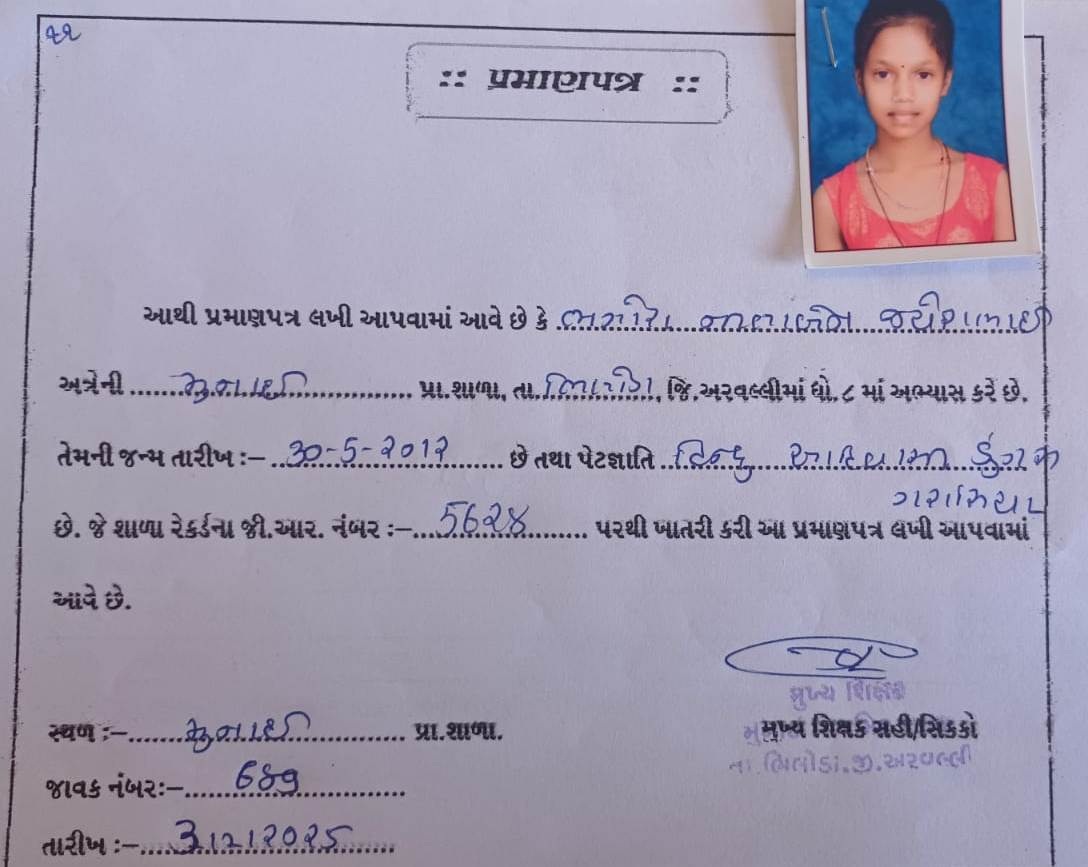 ૨૨
:: પ્રમાણપત્ર ::
આથી પ્રમાણપત્ર લખી આપવામાં આવે છે કે ભગોરા જયેશભાઈ
અત્રેની મુનાઈ પ્રા.શાળા, તા. ભિલોડા, જિ.અરવલ્લીમાં ધો. ૮ માં અભ્યાસ કરે છે.
તેમની જન્મ તારીખ :– 30-5-2012 છે તથા પેટાજ્ઞાતિ હિન્દુ આદિવાસી ડુંગરી
ગરાસિયા
છે. જે શાળા રેકર્ડના જી.આર. નંબર :– 5628 પરથી ખાતરી કરી આ પ્રમાણપત્ર લખી આપવામાં
આવે છે.
મુખ્ય શિક્ષક
સ્થળ :– મુનાઈ પ્રા.શાળા.
મુખ્ય શિક્ષક સહી/સિક્કો
તા ભિલોડા.જી.અરવલ્લી
જાવક નંબર:– 689
તારીખ :– 3/12/2025